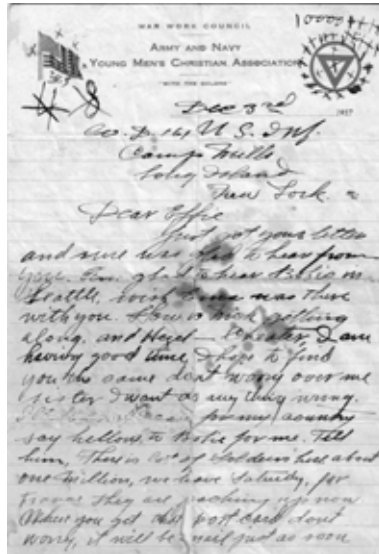 WAR WORK COUNCIL
ARMY AND NAVY
YOUNG MEN'S CHRISTIAN ASSOCIATION
"WITH THE COLORS"
Dec 3rd 1917
Co. D. 161 U S. Inf.
Camp Mills
Long Island
New York.
Dear Effie
Just got your letter
and sure was glad to hear from
you. glad to hear is in
Seattle, wish was there
with you. How is getting
along, and Hazel I am
having good time, I hope to find
you the same dont worry over me
sister I want
for my country
say hellow to for me. Tell
him, There is lot of Soldiers here about
one million, we leave Saturday, for
France they are packing up now
When you get this post card dont
worry, it will be just as soon